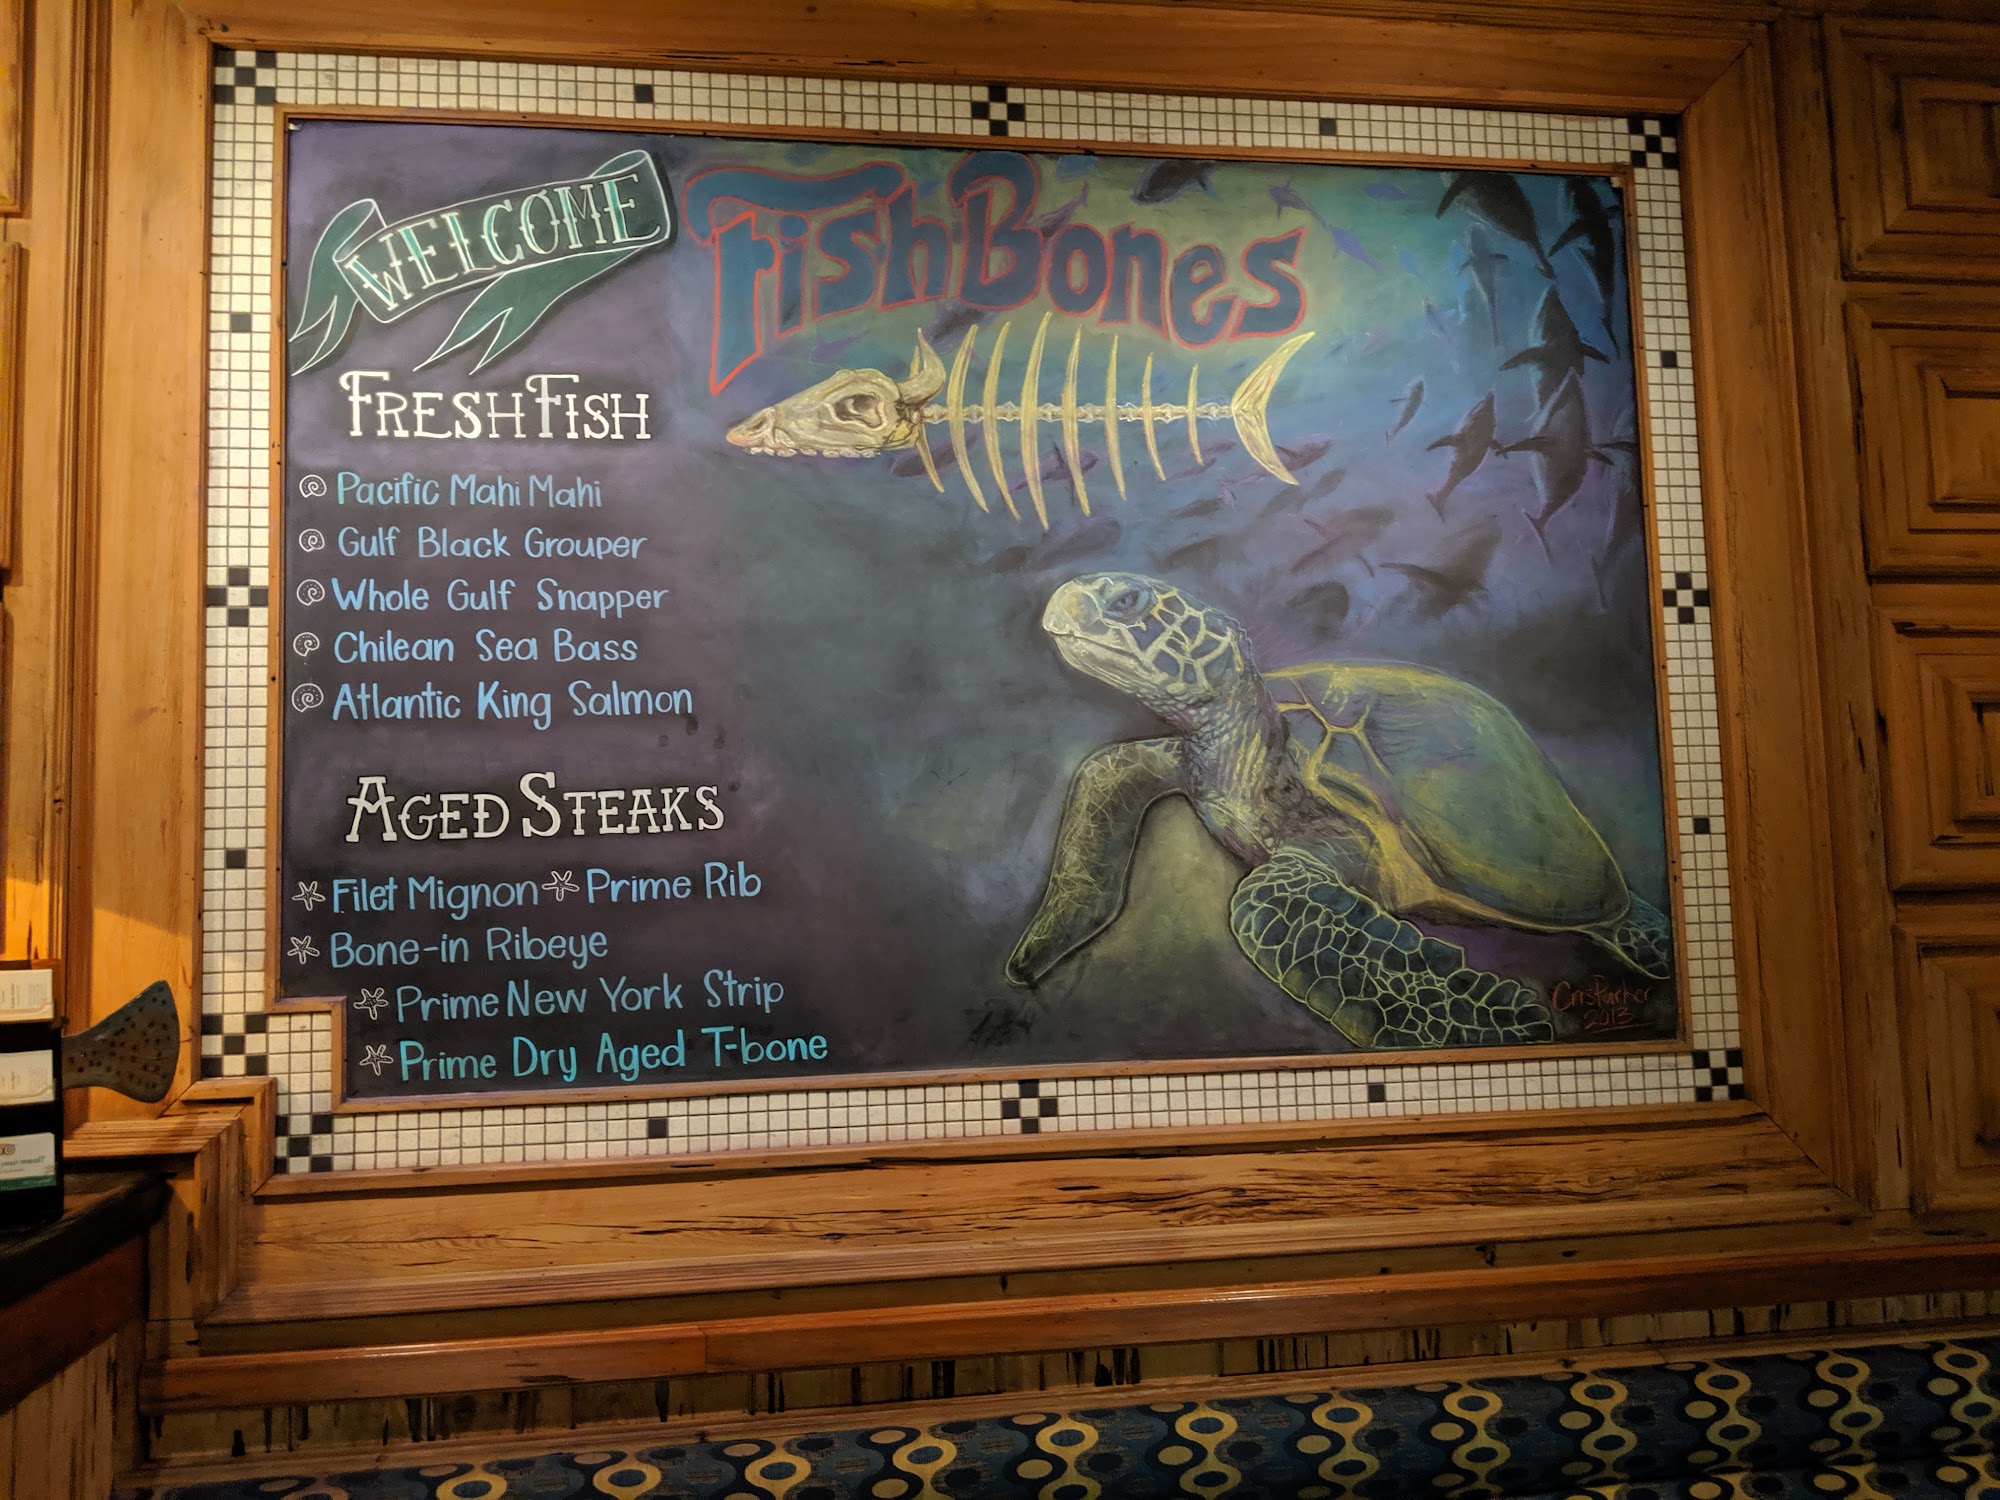 WELCOME
FishBones
FRESH FISH
Pacific Mahi Mahi
Gulf Black Grouper
Whole Gulf Snapper
Chilean Sea Bass
Atlantic King Salmon
AGED STEAKS
Filet Mignon Prime Rib
Bone-in Ribeye
Prime New York Strip
Prime Dry Aged T-bone
Cris Parker
2013